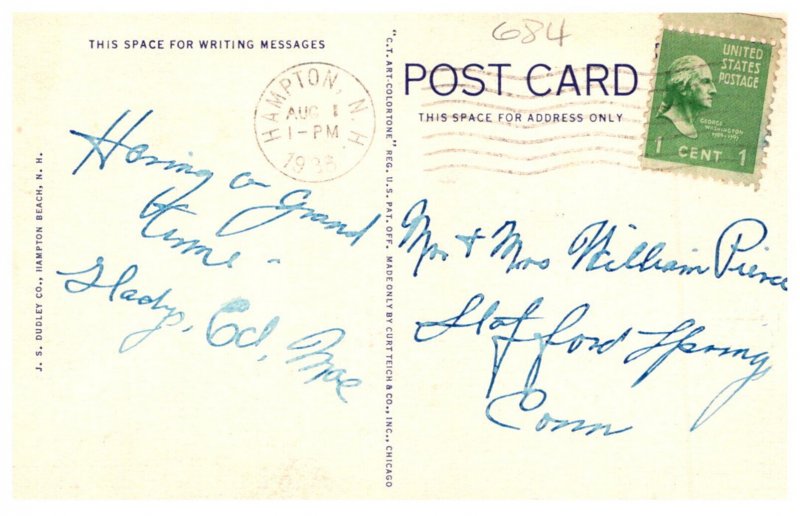 684
THIS SPACE FOR WRITING MESSAGES
HAMPTON, N.H.
AUG 1
1-PM
Having a Grand
time -
Gladys, Ed, Moe
J. S. DUDLEY CO., HAMPTON BEACH, N. H.
"C.T. ART-COLORTONE" REG. U.S. PAT. OFF. MADE ONLY BY CURT TEICH & CO., INC., CHICAGO
POST CARD
THIS SPACE FOR ADDRESS ONLY
UNITED
STATES
POSTAGE
GEORGE
WASHINGTON
1789-1797
1 CENT 1
Mr & Mrs William Pierce
Stafford Springs
Conn